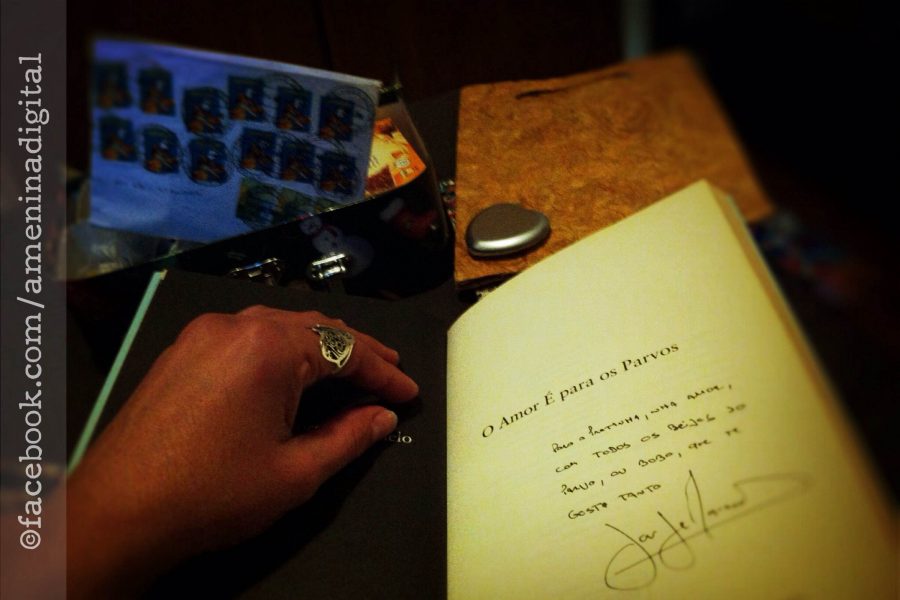 ©facebook.com/ameninadigital
O Amor É para os Parvos
Para a
com todos os beijos do
parvo, ou bobo, que te
gosta tanto
cio